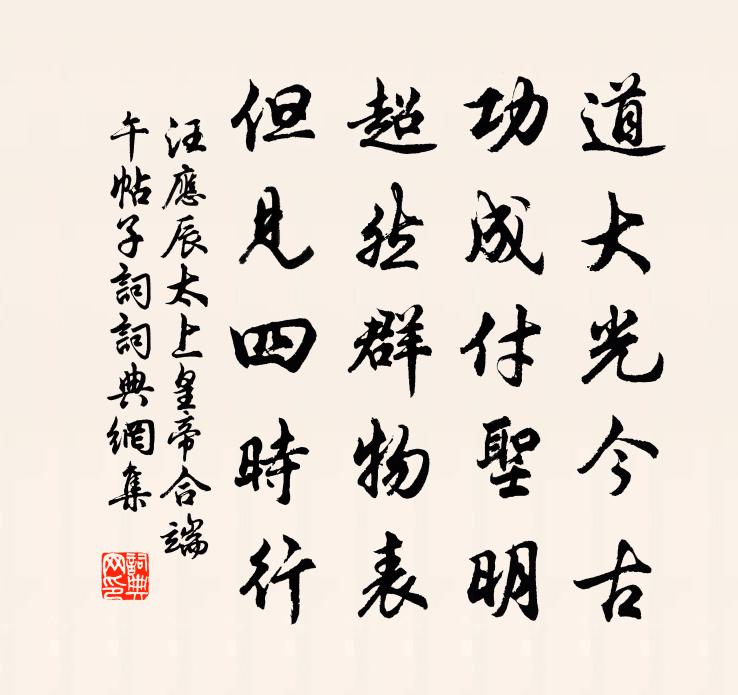 道大光今古
功成付聖明
超然群物表
但見四時行
汪應辰太上皇帝合端
午帖子詞詞典網集
詞典
网印